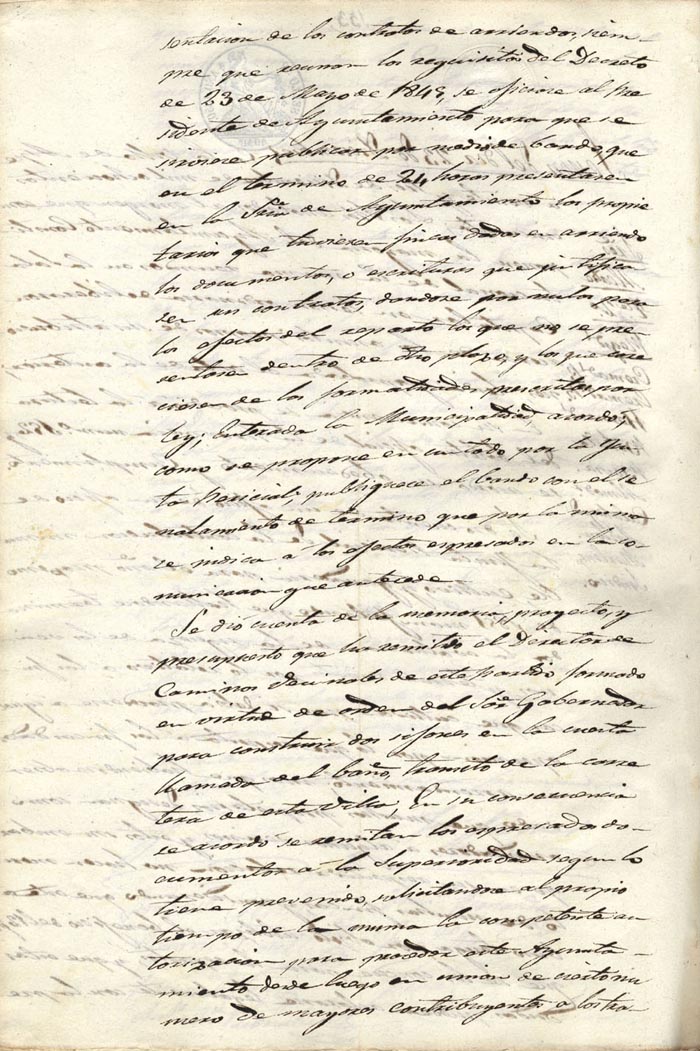 sentacion de los contratos de arriendos, siem-
pre que reunan los requisitos del Decreto
de 23 de Mayo de 1845, se oficiase al Pre
sidente de Ayuntamiento para que se
sirviese publicar por medio de bando que
en el termino de 24 horas presentasen
en la Sria de Ayuntamiento los propie
tarios que tuviesen fincas dadas en arriendo
los documentos, o escrituras que justifica
sen sus contratos, dandose por nulos para
los efectos del reparto los que no se pre
sentasen dentro de dho plazo, y los que care
ciesen de las formalidades prescritas por
ley; Enterada la Municipalidad acordó;
como se propone en un todo por la Jun
ta Pericial; publiquece el bando con el se
ñalamiento de termino que por la misma
se indica a los efectos espresados en la co-
municacion que antecede
Se dió cuenta de la memoria, proyecto, y
presupuesto que ha remitido el Director de
Caminos Vecinales de este partido formado
en virtud de orden del Sor Gobernador
para construir dos sifones en la cuesta
llamada del baño, transito de la carre
tera de esta Villa, En su consecuencia
se acordó se remitan los espresados do-
cumentos a la Superioridad segun lo
tiene prevenido, solicitandose al propio
tiempo de la misma la competente au
torizacion para proceder este Ayunta-
miento desde luego en union de cierto nu
mero de mayores contribuyentes a los tra